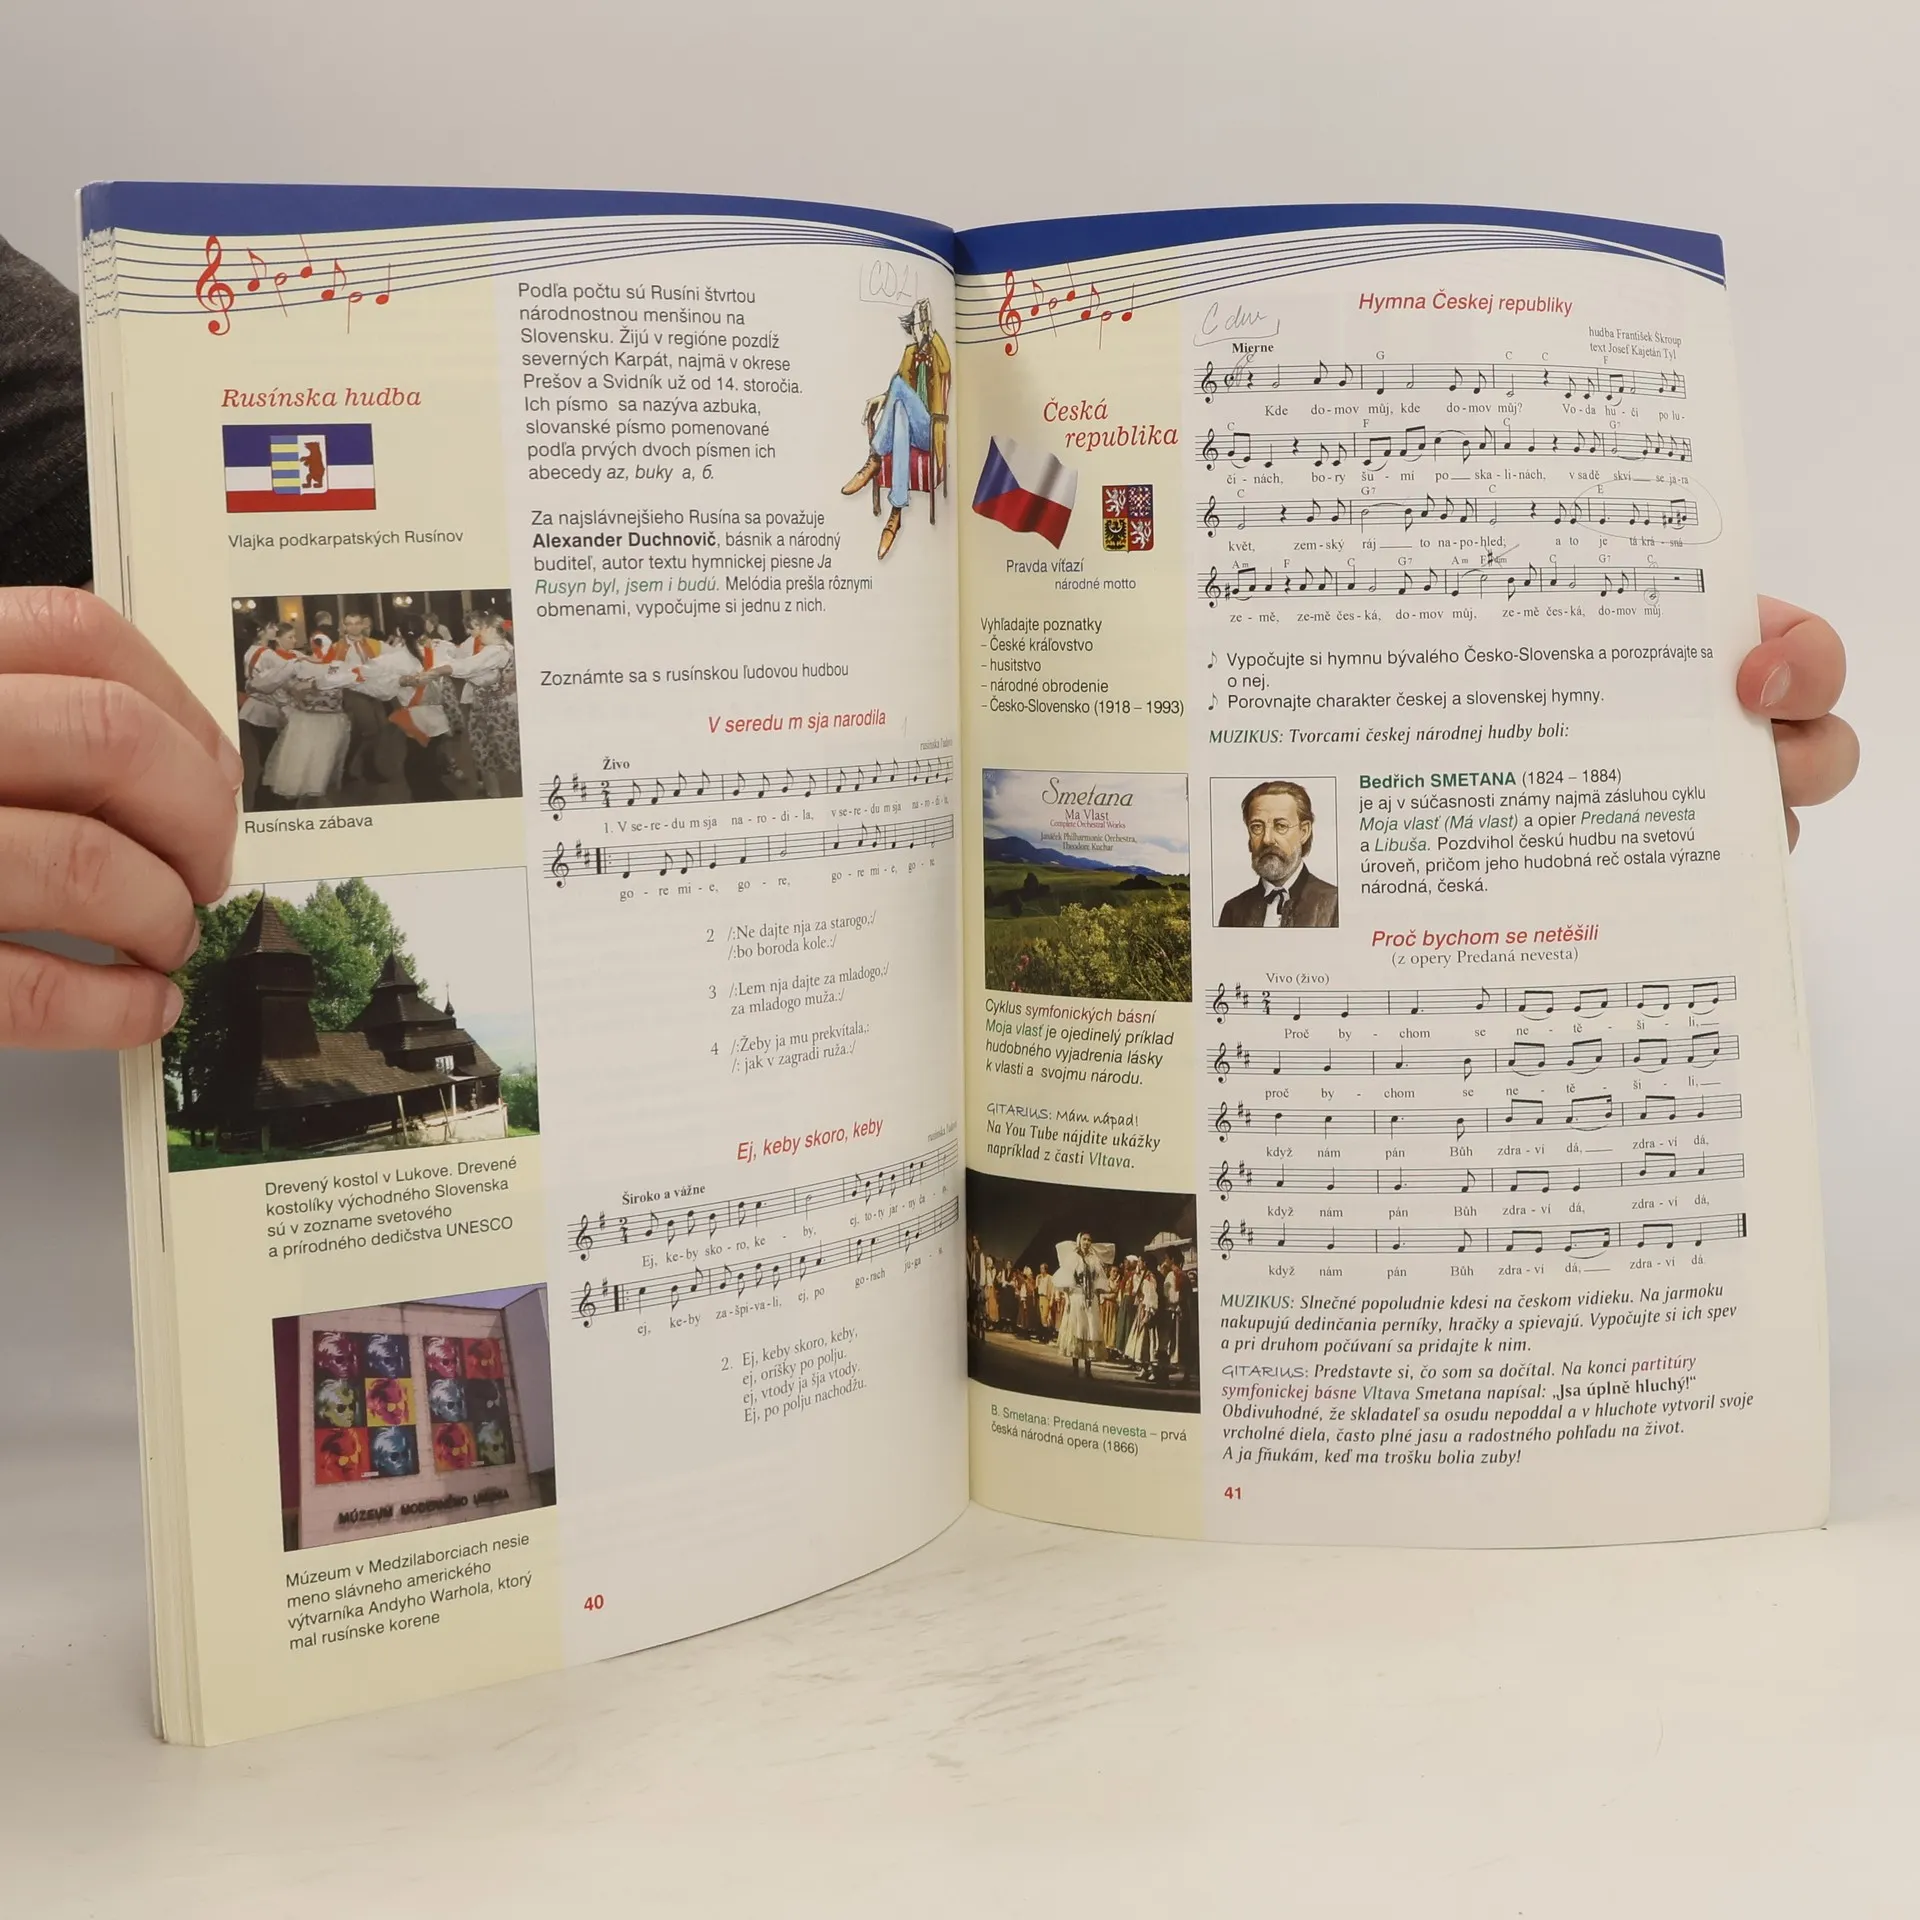 Rusínska hudba
Vlajka podkarpatských Rusínov
Rusínska zábava
Drevený kostol v Lukove. Drevené
kostolíky východného Slovenska
sú v zozname svetového
a prírodného dedičstva UNESCO
MÚZEUM MODERNÉHO UMENIA
Múzeum v Medzilaborciach nesie
meno slávneho amerického
výtvarníka Andyho Warhola, ktorý
mal rusínske korene
CD2
Podľa počtu sú Rusíni štvrtou
národnostnou menšinou na
Slovensku. Žijú v regióne pozdĺž
severných Karpát, najmä v okrese
Prešov a Svidník už od 14. storočia.
Ich písmo sa nazýva azbuka,
slovanské písmo pomenované
podľa prvých dvoch písmen ich
abecedy az, buky a, б.
Za najslávnejšieho Rusína sa považuje
Alexander Duchnovič, básnik a národný
buditeľ, autor textu hymnickej piesne Ja
Rusyn byl, jsem i budú. Melódia prešla rôznymi
obmenami, vypočujme si jednu z nich.
Zoznámte sa s rusínskou ľudovou hudbou
V seredu m sja narodila
rusínska ľudová
Živo
1. V se-re-du m sja na-ro-di-la, v se-re-du m sja na-ro-di-la,
go-re mi-e, go-re, go-re mi-e, go-re.
2 /:Ne dajte nja za starogo,:/
/:bo boroda kole.:/
3 /:Lem nja dajte za mladogo,:/
za mladogo muža.:/
4 /:Žeby ja mu prekvitala,:
/: jak v zagradi ruža.:/
Ej, keby skoro, keby
rusínska ľudová
Široko a vážne
Ej, ke-by sko-ro, ke-by, ej, to-ty jar-ny ča-s,
ej, ke-by za-špi-va-li, ej, po go-rach ju-ga-s
2. Ej, keby skoro, keby,
ej, oríšky po polju.
ej, vtody ja šja vtody.
Ej, po polju nachodžu.
40
Česká
republika
Pravda víťazí
národné motto
Vyhľadajte poznatky
- České kráľovstvo
- husitstvo
- národné obrodenie
- Česko-Slovensko (1918 – 1993)
Smetana
Ma Vlast
Complete Orchestral Works
Janáček Philharmonic Orchestra,
Theodore Kuchar
Cyklus symfonických básní
Moja vlasť je ojedinelý príklad
hudobného vyjadrenia lásky
k vlasti a svojmu národu.
GITARIUS: Mám nápad!
Na You Tube nájdite ukážky
napríklad z časti Vltava.
B. Smetana: Predaná nevesta – prvá
česká národná opera (1866)
C dur
Hymna Českej republiky
hudba František Škroup
text Josef Kajetán Tyl
Mierne
C G C C F
Kde do-mov můj, kde do-mov můj? Vo-da hu-čí po lu-
C F C G7
či-nách, bo-ry šu-mí po ska-li-nách, v sadě skví se ja-ra
C G7 C E
květ, zem-ský ráj to na-po-hled; a to je ta krá-sná
Am F C G7 Am F#dim C G7 C
ze-mě, ze-mě čes-ká, do-mov můj, ze-mě čes-ká, do-mov můj
♪ Vypočujte si hymnu bývalého Česko-Slovenska a porozprávajte sa
o nej.
♪ Porovnajte charakter českej a slovenskej hymny.
MUZIKUS: Tvorcami českej národnej hudby boli:
Bedřich SMETANA (1824 – 1884)
je aj v súčasnosti známy najmä zásluhou cyklu
Moja vlasť (Má vlast) a opier Predaná nevesta
a Libuša. Pozdvihol českú hudbu na svetovú
úroveň, pričom jeho hudobná reč ostala výrazne
národná, česká.
Proč bychom se netěšili
(z opery Predaná nevesta)
Vivo (živo)
Proč by-chom se ne-tě-ši-li,
proč by-chom se ne-tě-ši-li,
když nám pán Bůh zdra-ví dá, zdra-ví dá,
když nám pán Bůh zdra-ví dá, zdra-ví dá,
když nám pán Bůh zdra-ví dá, zdra-ví dá.
MUZIKUS: Slnečné popoludnie kdesi na českom vidieku. Na jarmoku
nakupujú dedinčania perníky, hračky a spievajú. Vypočujte si ich spev
a pri druhom počúvaní sa pridajte k nim.
GITARIUS: Predstavte si, čo som sa dočítal. Na konci partitúry
symfonickej básne Vltava Smetana napísal: „Jsa úplně hluchý!“
Obdivuhodné, že skladateľ sa osudu nepoddal a v hluchote vytvoril svoje
vrcholné diela, často plné jasu a radostného pohľadu na život.
A ja fňukám, keď ma trošku bolia zuby!
41